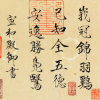 峩冠錦羽雞
已知全五德
安逸勝鳧鷖
宣和殿御製并書